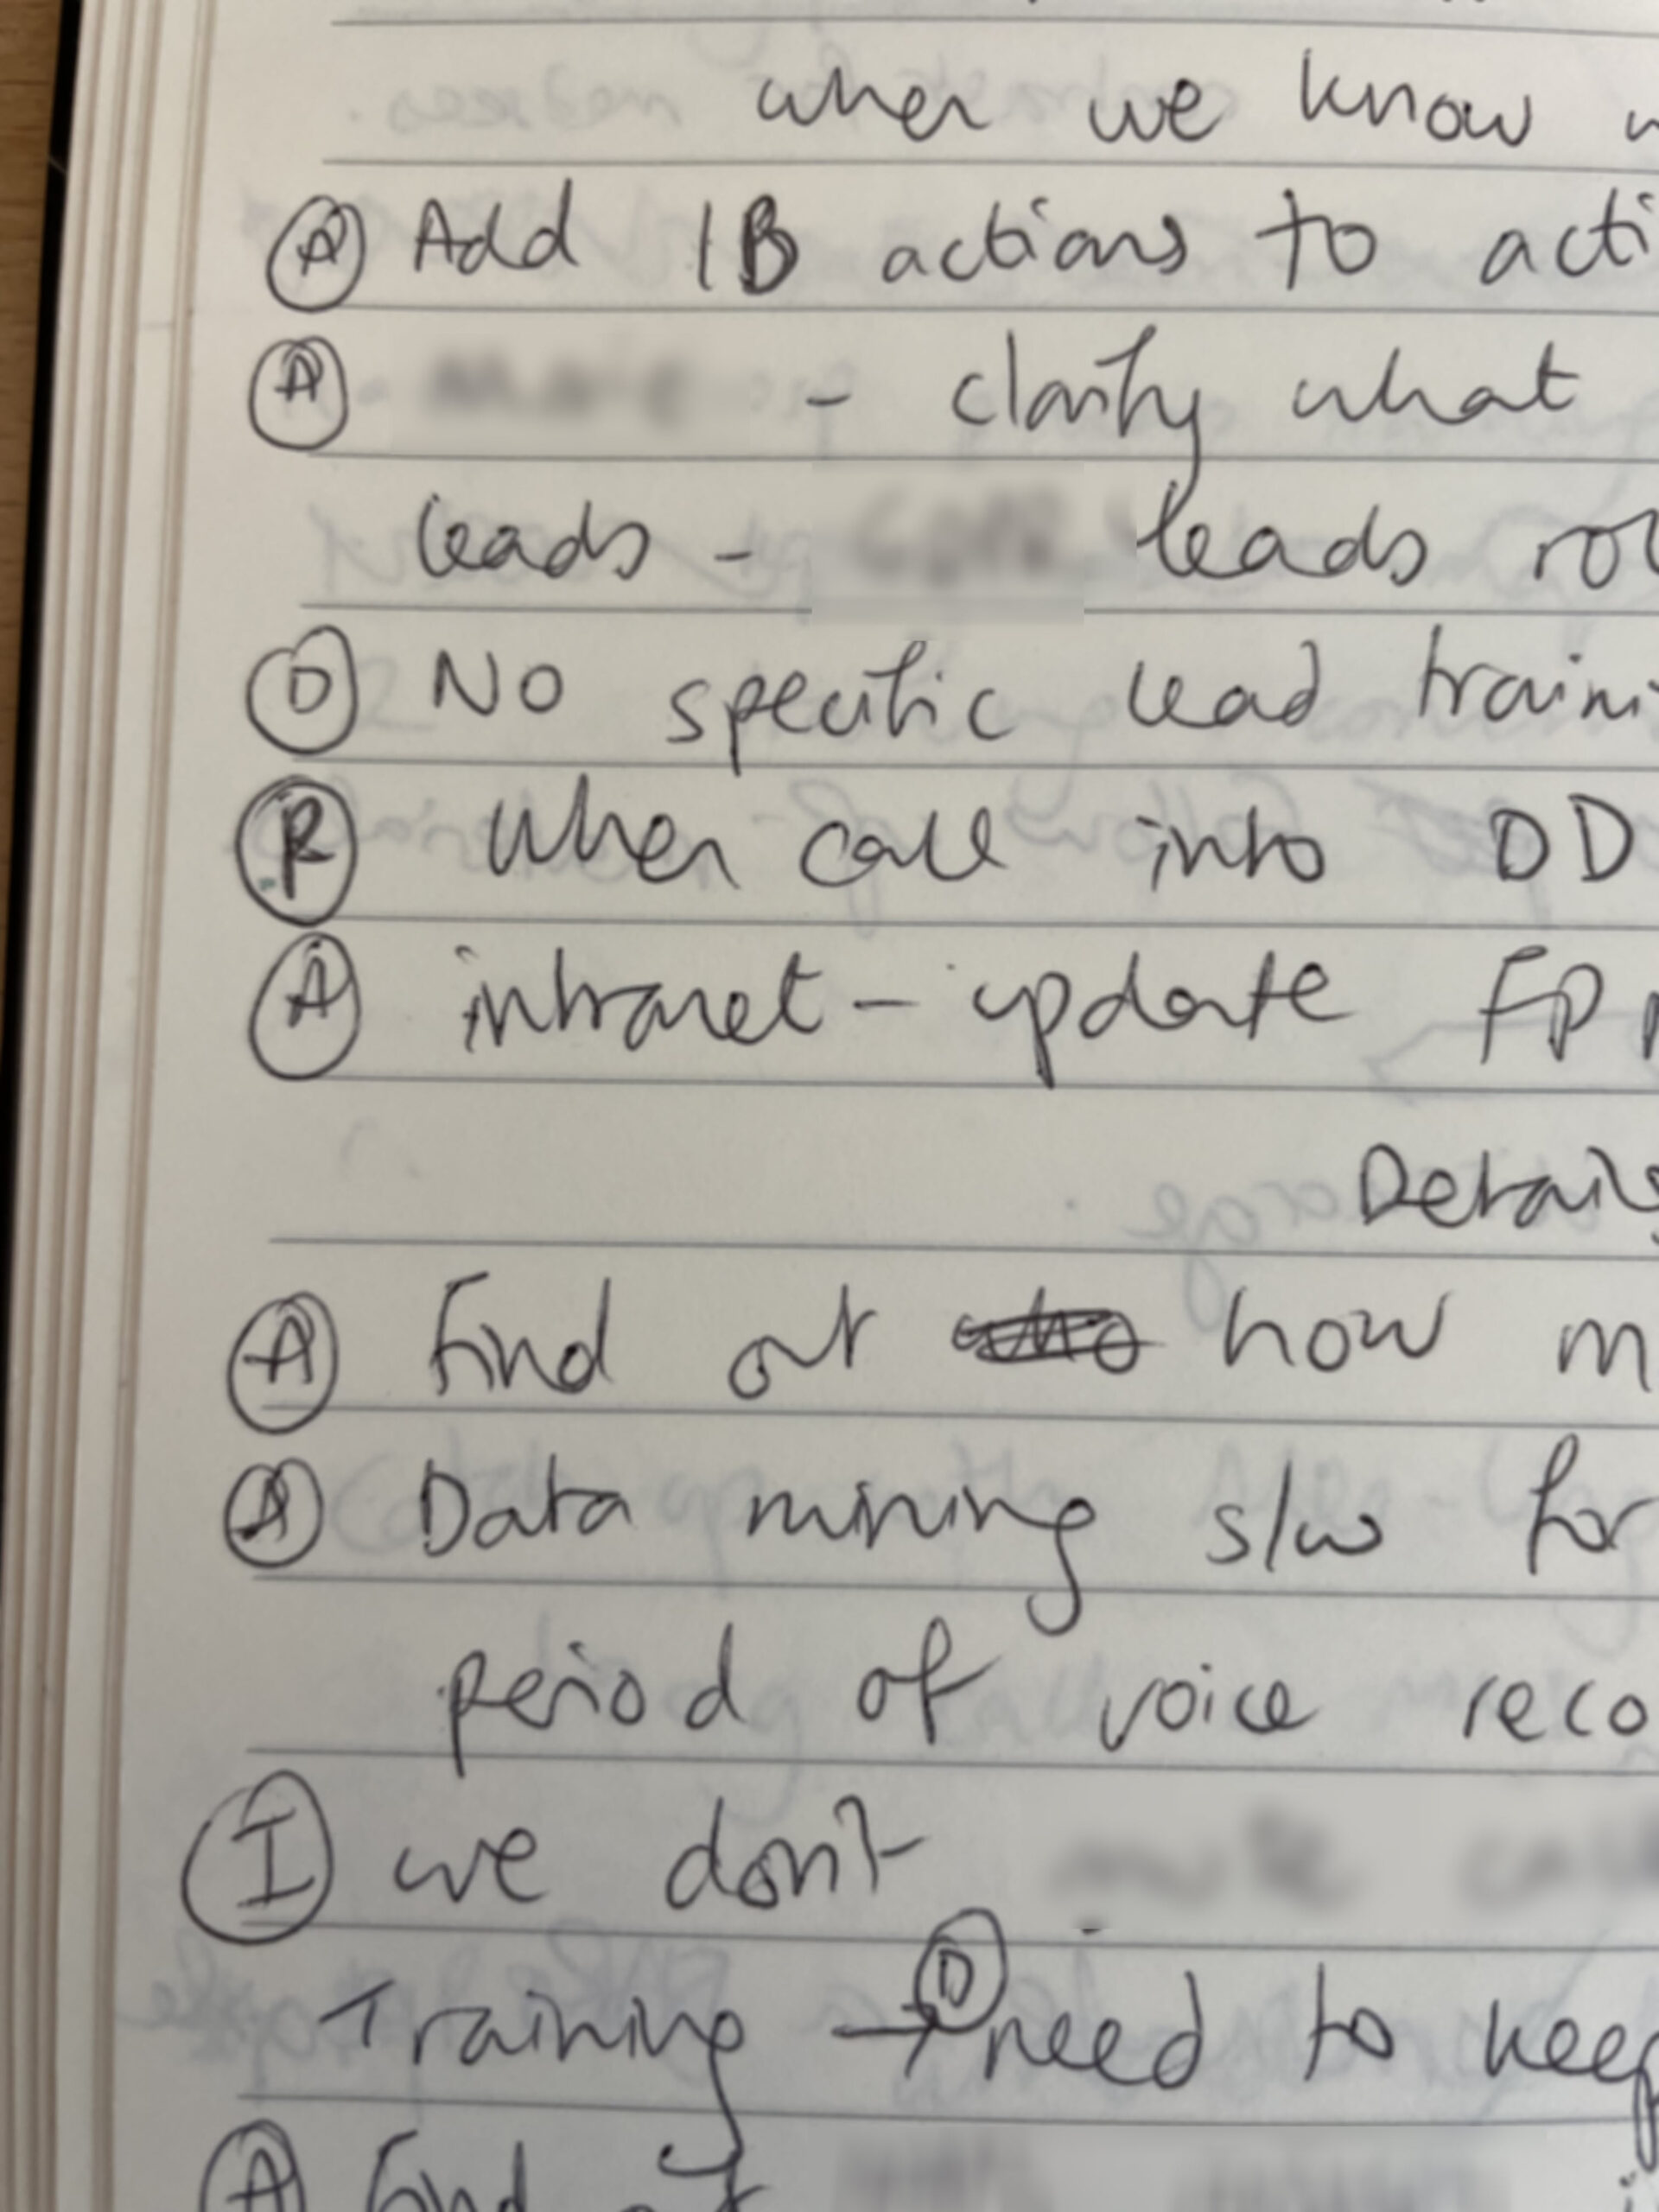 when we know
Ⓐ Add IB actions to acti
Ⓐ - clarify what
leads - leads rol
Ⓓ No specific lead traini
Ⓡ when call into DD
Ⓐ intranet - update FP
Details
Ⓐ Find out how m
Ⓐ Data mining s/w for
period of voice reco
Ⓘ we don't
Training → Ⓓ need to keep
Ⓐ Find out